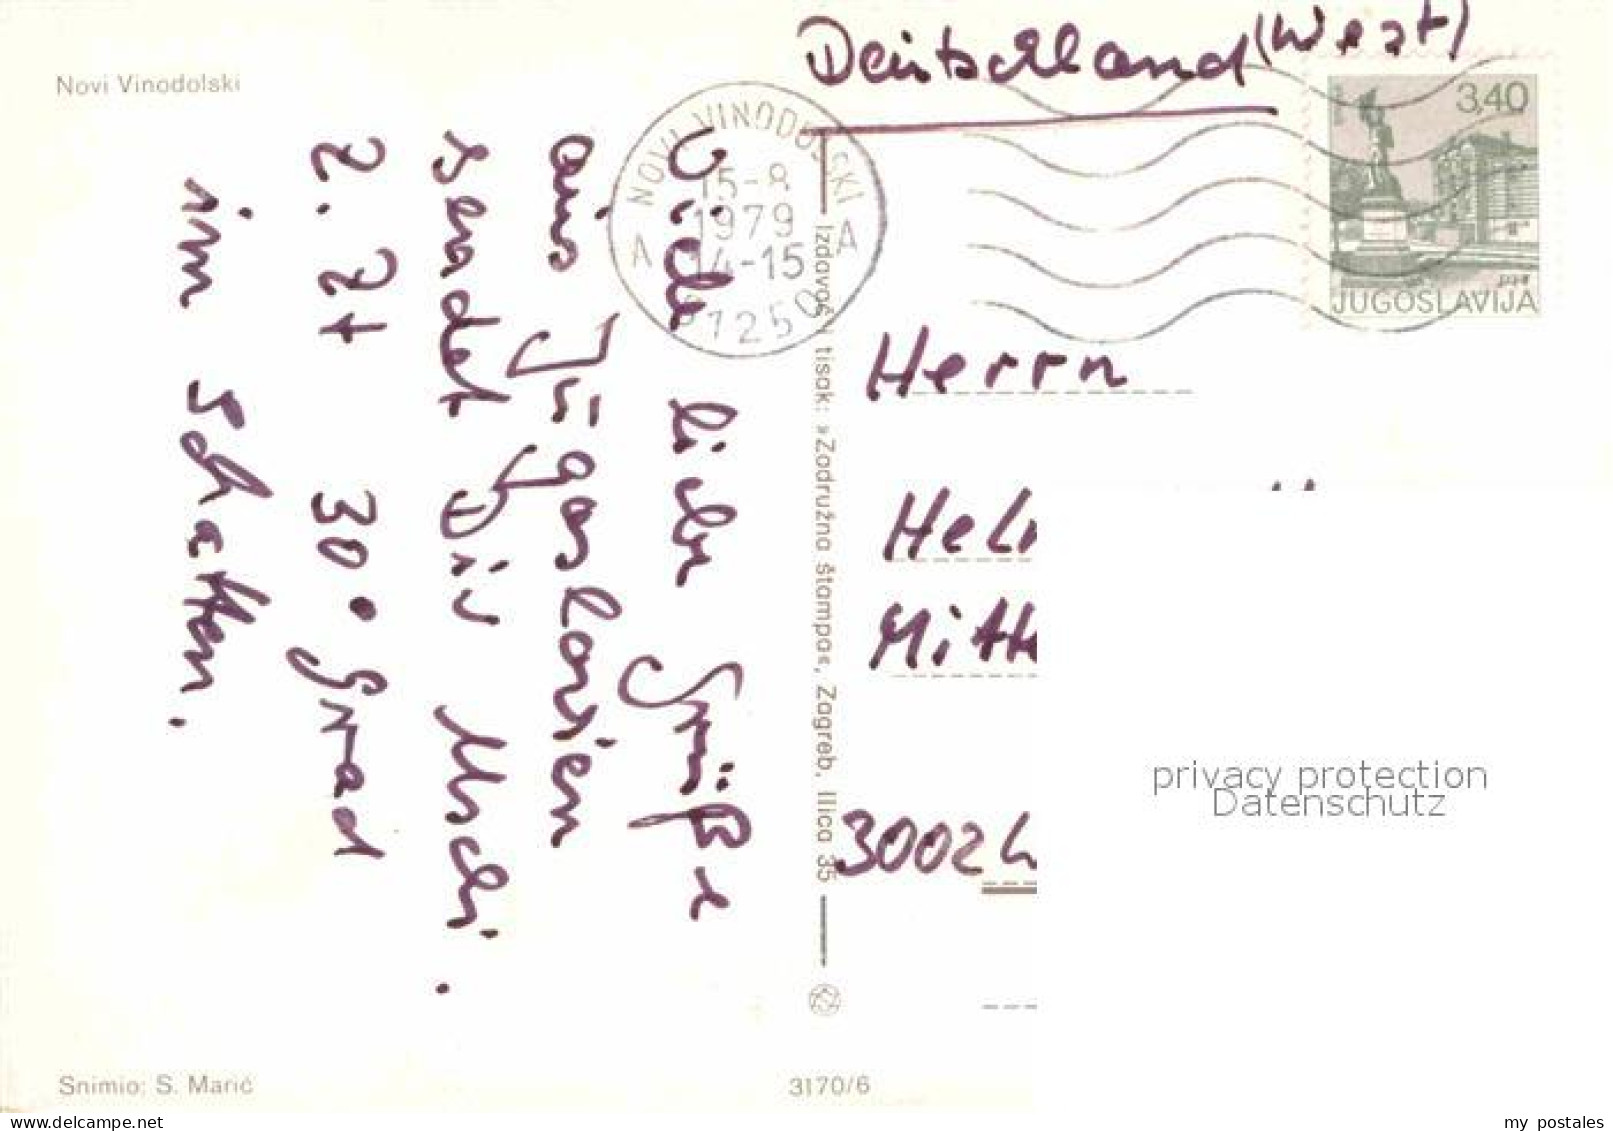 Novi Vinodolski
Deutschland (West)
NOVI VINODOLSKI
15-8
1979
14-15
A A
51250
3,40
JUGOSLAVIJA
Viele liebe Grüße
aus Jugoslavien
sendet Dir Uschi.
Z. Zt 30° Grad
im Schatten.
Izdavač i tisak: »Zadružna štampa«, Zagreb, Ilica 35
Herrn
Hel
Mitt
3002
privacy protection
Datenschutz
Snimio: S. Marić
3170/6
delcampe.net
my_postales